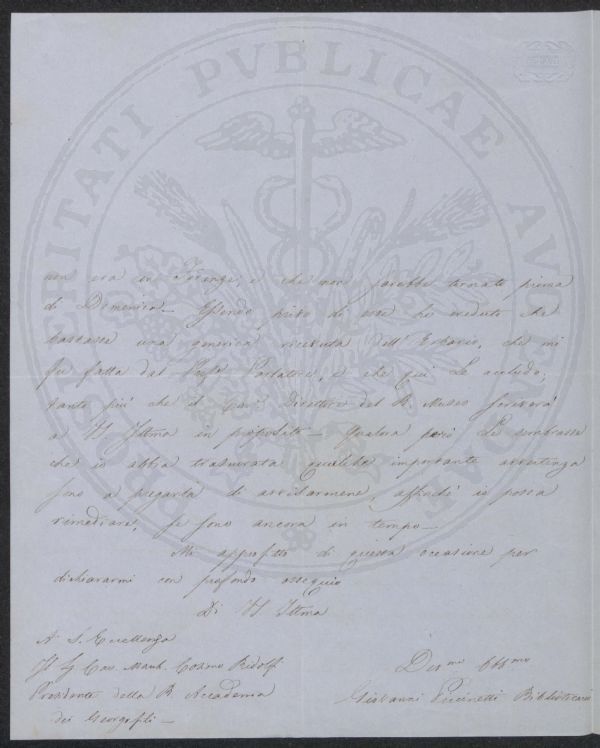 PROSPERITATI PVBLICAE AVGENDAE
non era in Firenze, e che non sarebbe tornato prima
di Domenica — Essendo privo di esse ho creduto che
bastasse una generica ricevuta dell' Erbario, che mi
fu fatta dal Portatore, e che qui Le accludo;
tanto più che il Direttore del R. Museo scriverà
a V. S. Illma in proposito — Qualora però Le sembrasse
che io abbia trascurata qualche importante avvertenza
sono a pregarla di avvisarmene, affinché io possa
rimediare, se sono ancora in tempo —
Mi approfitto di questa occasione per
dichiararmi con profondo ossequio
Di V. S. Illma
A S. Eccellenza
Il Sig. Cav. March. Cosimo Ridolfi
Presidente della R. Accademia
dei Georgofili —
Dev.mo Obb.mo
Giovanni Puccinetti Bibliotecario